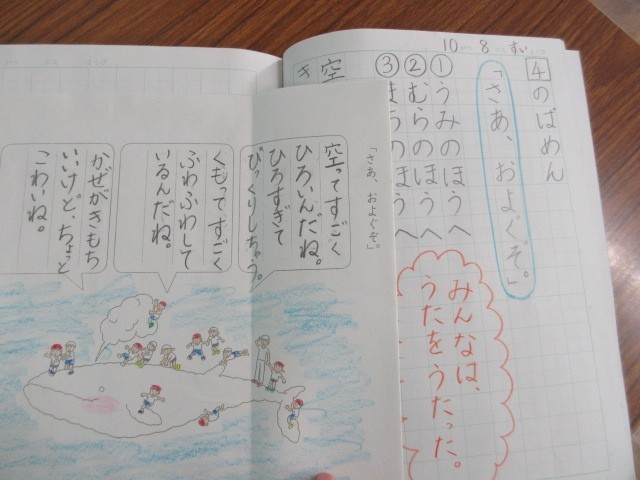 10 8 すい
4 のばめん
「さあ、およぐぞ。」
①うみのほうへ
②むらのほうへ
③まちのほうへ
空
みんなは、
うたをうたった。
「さあ、およぐぞ。」
空ってすごく
ひろいんだね。
ひろすぎて
びっくりしちゃう。
くもってすごく
ふわふわして
いるんだね。
かぜがきもち
いいけど、ちょっと
こわいね。